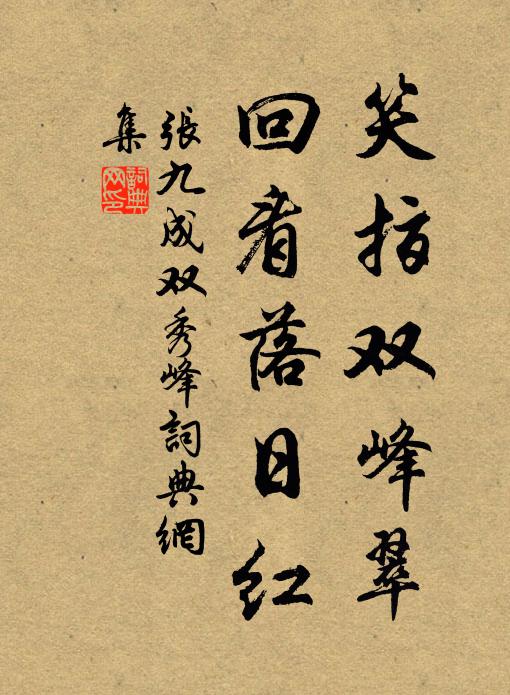 笑指双峰翠
回看落日红
張九成双秀峰詞典網
集
詞典
网印